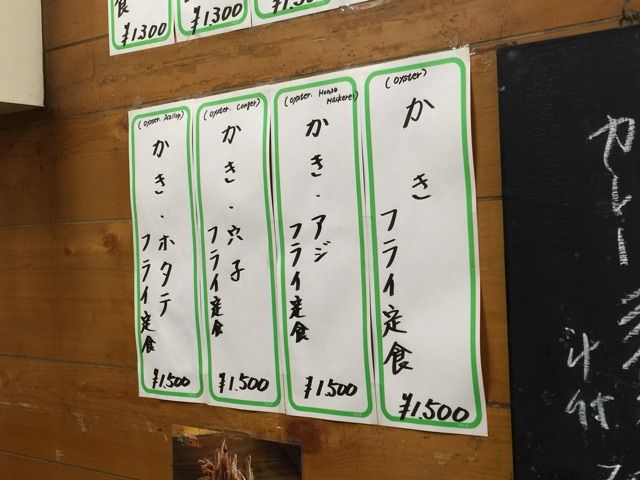 食
¥1.300
¥1300
¥1.500
(oyster)
かき
フライ定食
¥1.500
(oyster. Horse Mackerel)
かき・アジ
フライ定食
¥1.500
(oyster. Conger)
かき・穴子
フライ定食
¥1.500
(oyster. Scallop)
かき・ホタテ
フライ定食
¥1.500
カレー
汁付